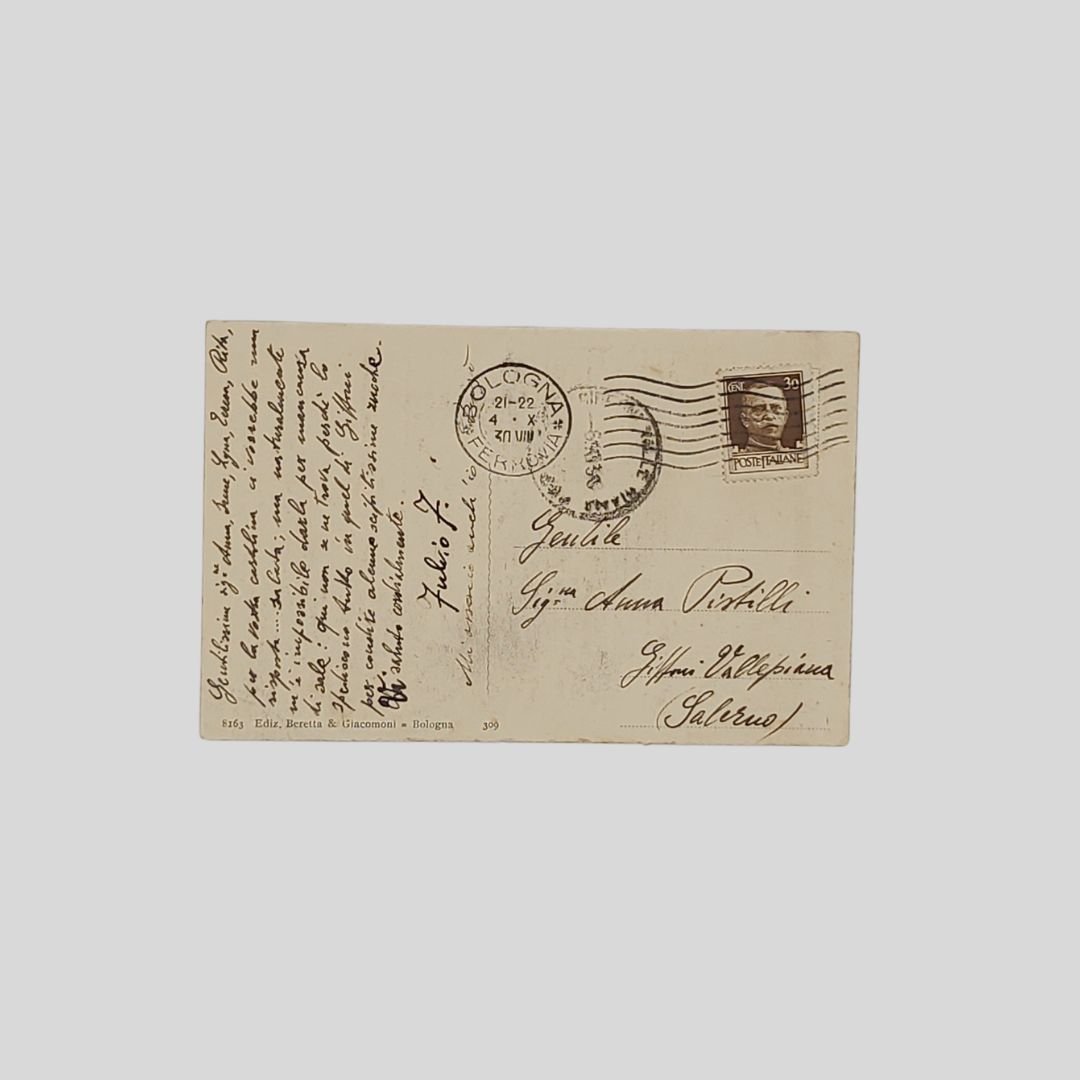 Gentilissime sig.ne Anna, Irene, Lyna, Teresa, Rita,
per la vostra cartolina ci vorrebbe una
risposta... salata; ma naturalmente
m'è impossibile darla per mancanza
di sale: qui non se ne trova perchè lo
spediscono tutto in quel di Giffoni
per condire alcune scipitissime zucche.
Vi saluto cordialmente.
Fulvio F.
Mi associo anch'io
8163 Ediz. Beretta & Giacomoni = Bologna 309
BOLOGNA
21-22
4 · X
30 VIII
FERROVIA
CENT. 30
POSTE ITALIANE
Gentile
Sig.na Anna Pistilli
Giffoni Vallepiana
(Salerno)